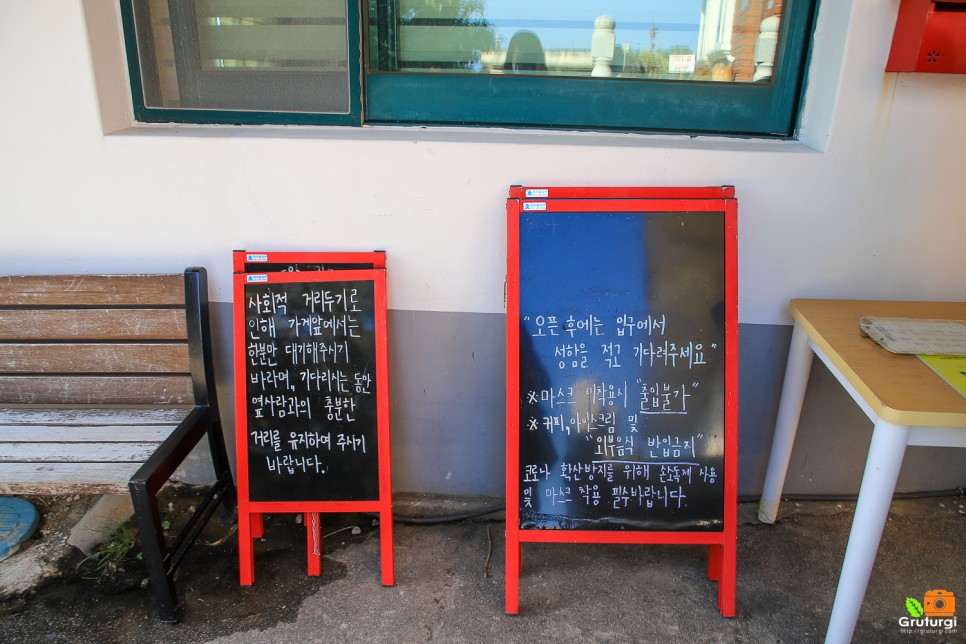 사회적 거리두기로
인해 가게앞에서는
한분만 대기해주시기
바라며, 기다리시는 동안
옆사람과의 충분한
거리를 유지하며 주시기
바랍니다.
"오픈 후에는 입구에서
성함을 적고 기다려주세요"
※마스크 미착용시 "출입불가"
※커피,아이스크림 및
"외부음식 반입금지"
코로나 확산방지를 위해 손소독제 사용
및 마스크 착용 필수바랍니다.
Gruturgi
http://gruturgi.com